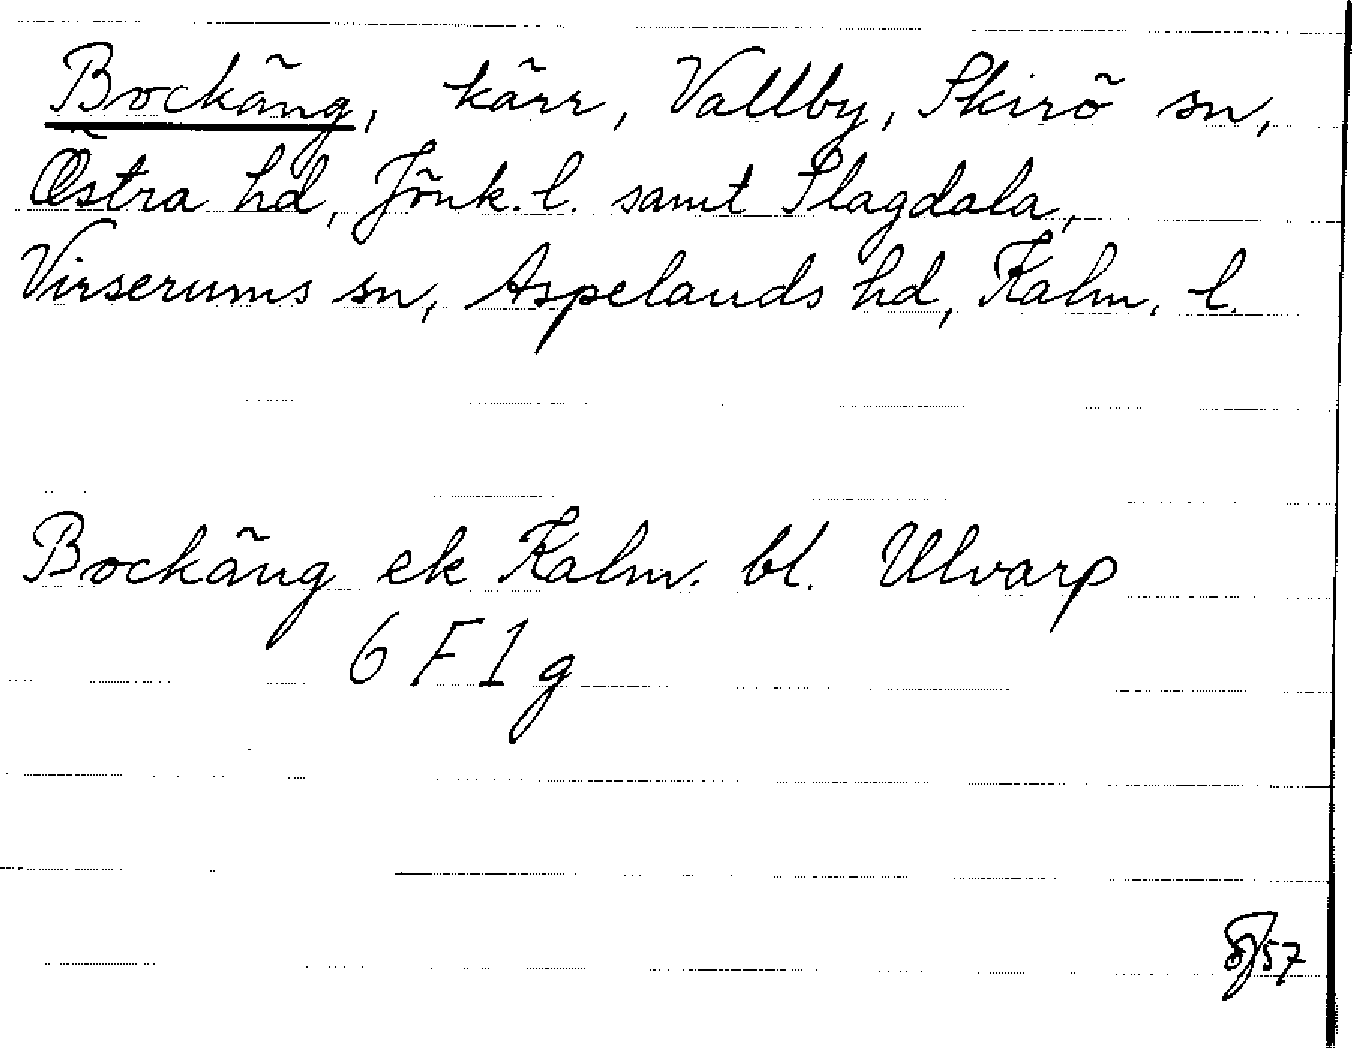 Bockäng, kärr, Vallby, Skirö sn,
Östra hd, Jönk. l. samt Slagdala,
Virserums sn, Aspelands hd, Kalm. l.
Bockäng ek Kalm. bl. Ulvarp
6 F 1 g
57